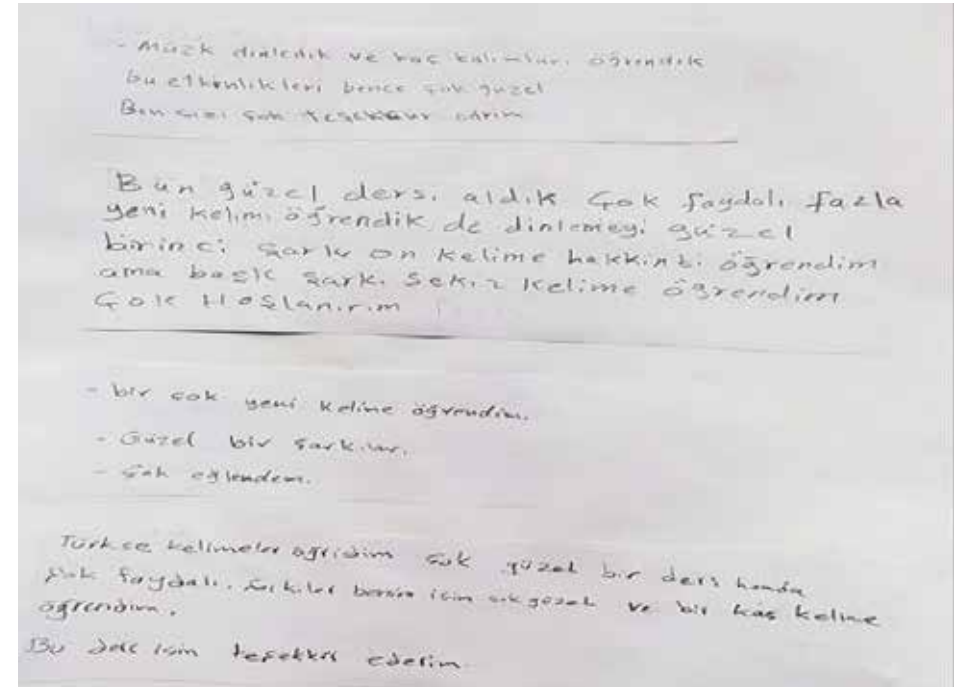 - Müzk dinledik ve kaç kalimlar. öğrendik
bu etkinlikleri bence çok güzel
Ben sizi çok teşekkür edrim
Bün güzel ders. aldık Çok faydalı fazla
yeni kelimi öğrendik de dinlemeyi güzel
birinci şarkı on kelime hakkinbi öğrendim
ama başk şark. sekiz kelime öğrendim
Çok Hoşlanırım
- bir çok yeni kelime öğrendim.
- Güzel bir şarkılar.
- Çok eğlendem.
Türkçe kelimeler öğridim çok güzel bir ders hemde
çok faydalı. benim için çok güzel ve bir kaç kelime
öğrendim.
Bu ders için teşekkür ederim.